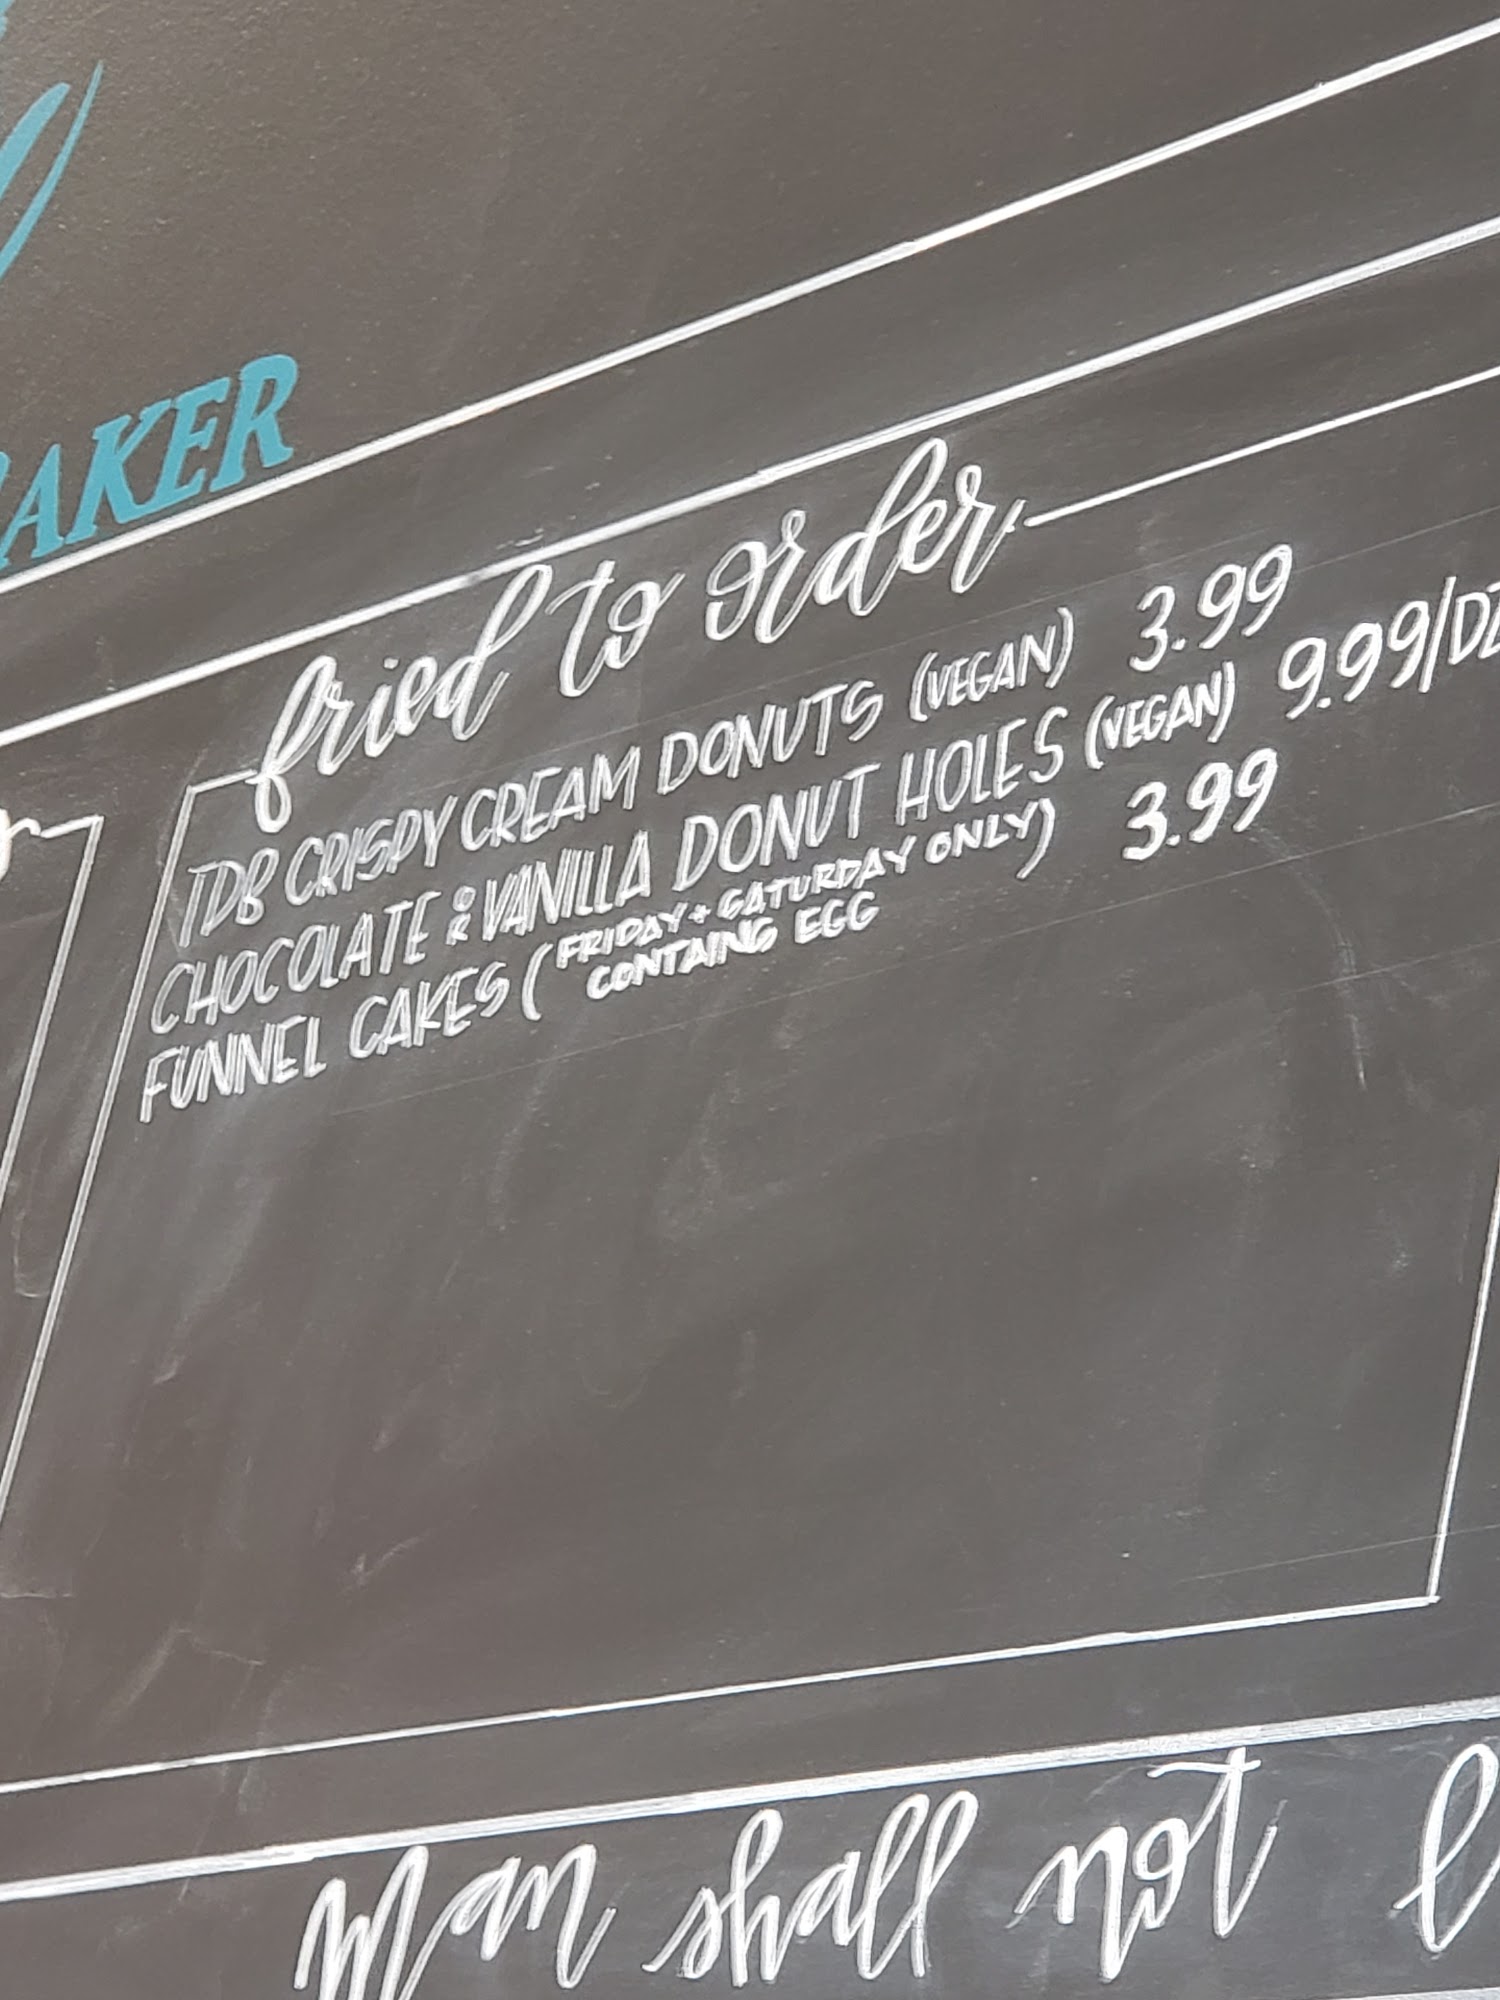 BAKER
fried to order
TDB CRISPY CREAM DONUTS (VEGAN) 3.99
CHOCOLATE OR VANILLA DONUT HOLES (VEGAN) 9.99/DZ
FUNNEL CAKES (FRIDAY + SATURDAY ONLY) 3.99
CONTAINS EGG
Man shall not